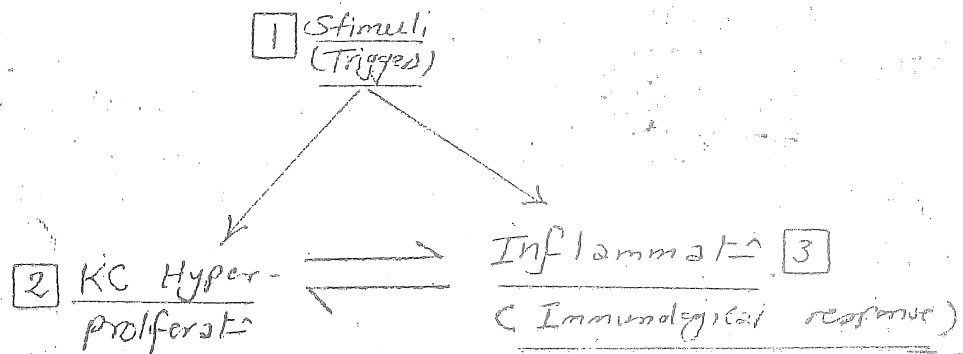 1 Stimuli
(Triggers)
2 KC Hyper-
proliferat=
Inflammat= 3
(Immunological response)